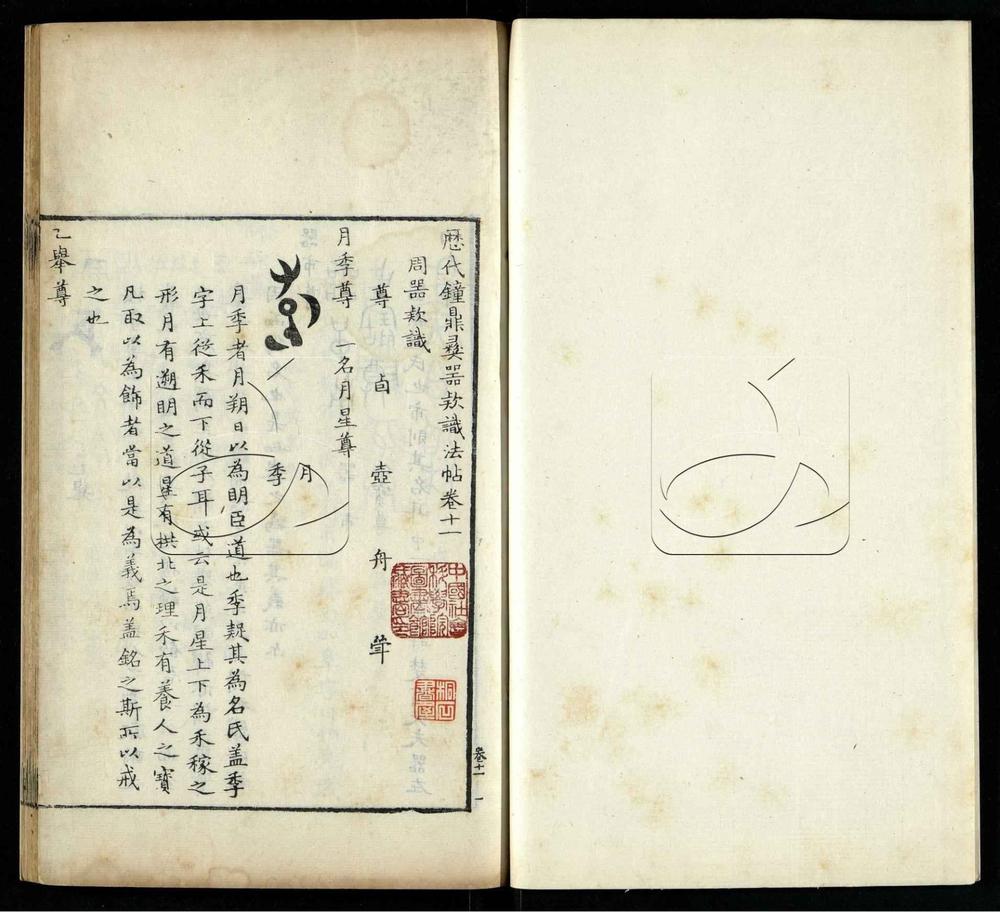 歷代鐘鼎彝器款識法帖卷十一
周器款識
尊 卣 壺 舟 斝
月季尊 一名月星尊
月
季
月季者月朔日以為明臣道也季疑其為名氏蓋季
字上從禾而下從子耳或云是月星上下為禾稼之
形月有遡明之道星有拱北之理禾有養人之寶
凡取以為飾者當以是為義焉蓋銘之斯所以戒
之也
乙舉尊
卷十一 一
中國社會科學院圖書館藏書印